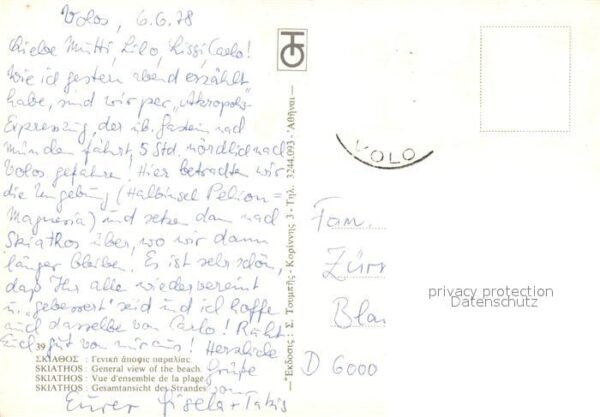 Volos, 6.6.78
Liebe Mutti, Lilo, Lissi, Carlo!
Wie ich gestern abend erzählt
habe, sind wir per „Akropolis"-
Expresszug, der üb. Gastein nach
München fährt, 5 Std. nördlich nach
Volos gefahren. Hier betrachten wir
die Umgebung (Halbinsel Pelion =
Magnesia) und setzen dann nach
Skiathos über, wo wir dann
länger bleiben. Es ist sehr schön,
daß Ihr alle wiedervereint
u. „gebessert" seid und ich hoffe
auch dasselbe von Carlo!
Euch gut von mir aus! Herzliche
Grüße
von
Eurer Gisela + Takis
39
ΣΚΙΑΘΟΣ : Γενική άποψις παραλίας
SKIATHOS : General view of the beach
SKIATHOS : Vue d'ensemble de la plage
SKIATHOS : Gesamtansicht des Strandes
—Ἔκδοσις : Σ. Τσιμπῆς - Κορίννης 3 - Τηλ. 3244.093 - Ἀθῆναι—
VOLO
Fam.
Zürn
Blau
D 6000
privacy protection
Datenschutz